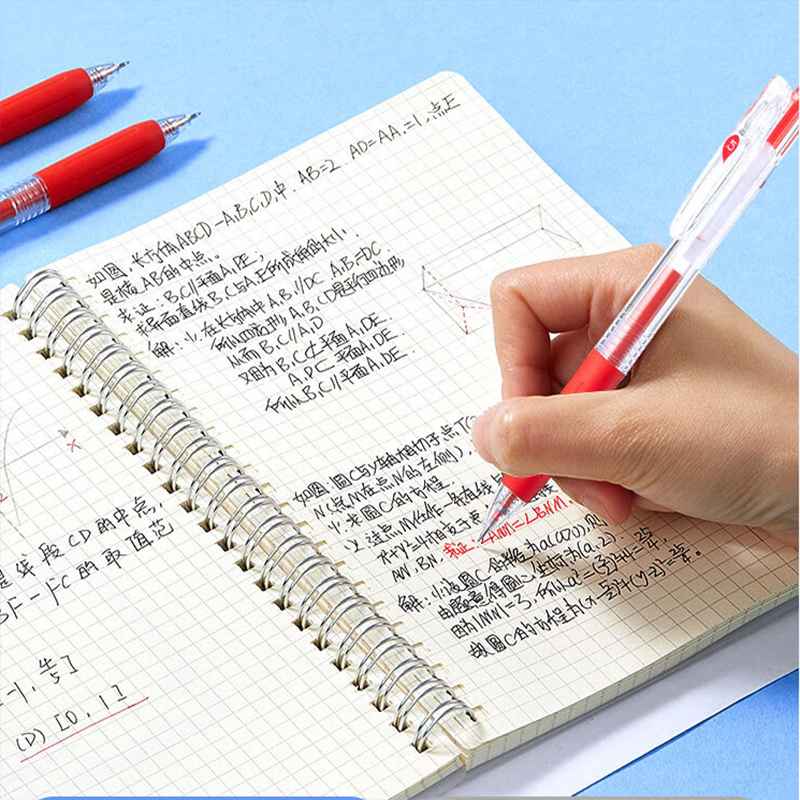 x
是线段CD的中点,
BF-FC的取值范
-1, 4/5]
(D) [0, 1]
如图, 长方体ABCD-A₁B₁C₁D₁中, AB=2, AD=AA₁=1, 点E
是棱AB的中点.
求证: B₁C∥平面A₁DE;
求异面直线B₁C与A₁E所成角的大小.
解: (1). 在长方体中A₁B₁∥DC A₁B₁=DC
所以四边形A₁B₁CD是平行四边形
从而B₁C∥A₁D
又因为B₁C⊄平面A₁DE.
A₁D⊂平面A₁DE.
所以B₁C∥平面A₁DE.
如图, 圆C与y轴相切于点T(
N(点M在点N的左侧),
(1). 求圆C的方程.
(2). 过点M任作一条直线与
x²+y²=4相交于
AN, BN, 求证: ∠ANM=∠BNM.
解: (1)设圆C的半径为a(a>0), 则
由题意得圆心坐标为(a,2).
因为|MN|=3, 所以a²=(3/2)²+4=25/4,
故圆C的方程为(x-5/2)²+(y-2)²=25/4。
5